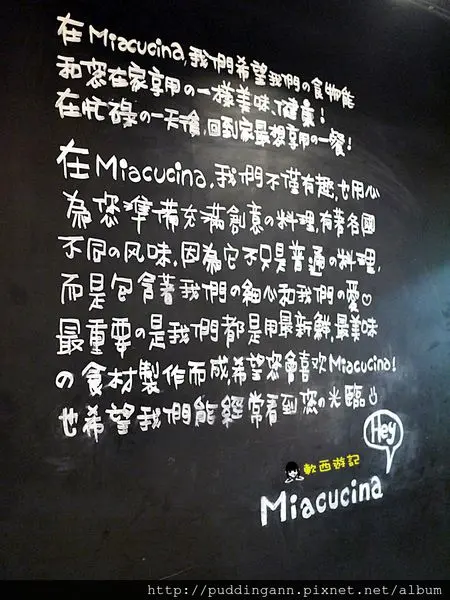 在Miacucina,我們希望我們の食物能
和您在家享用の一樣美味、健康!
在忙碌の一天後,回到家最想享用の一餐!
在Miacucina,我們不僅有趣,也用心
為您準備充滿創意の料理,有著各國
不同の风味.因為它不只是普通の料理,
而是包含著我們の細心和我們の愛♡
最重要の是我們都是用最新鮮,最美味
の食材製作而成,希望您會喜欢Miacucina!
也希望我們能經常看到您の光臨
Hey
軟西遊記
Miacucina
http://puddingann.pixnet.net/album